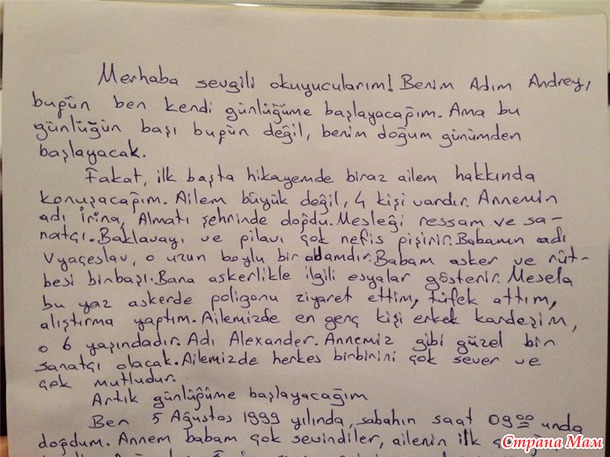 Merhaba sevgili okuyucularım! Benim Adım Andrey,
bugün ben kendi günlüğüme başlayacağım. Ama bu
günlüğün başı bugün değil, benim doğum günümden
başlayacak.
Fakat, ilk başta hikayemde biraz ailem hakkında
konuşacağım. Ailem büyük değil, 4 kişi vardır. Annemin
adı İrina, Almatı şehrinde doğdu. Mesleği ressam ve sa-
natçı. Baklavayı ve pilavı çok nefis pişirir. Babamın adı
Vyaçeslav, o uzun boylu bir adamdır. Babam asker ve rüt-
besi binbaşı. Bana askerlikle ilgili esyalar gösterir. Mesela
bu yaz askerde poligonu ziyaret ettim, tüfek attım,
alıştırma yaptım. Ailemizde en genç kişi erkek kardeşim,
o 6 yaşındadır. Adı Alexander. Annemiz gibi güzel bir
sanatçı olacak. Ailemizde herkes birbirini çok sever ve
çok mutludur.
Artık günlüğüme başlayacağım
Ben 5 Ağustos 1999 yılında, sabahın saat 09 00 unda
doğdum. Annem babam çok sevindiler, ailenin ilk
Страна Мам